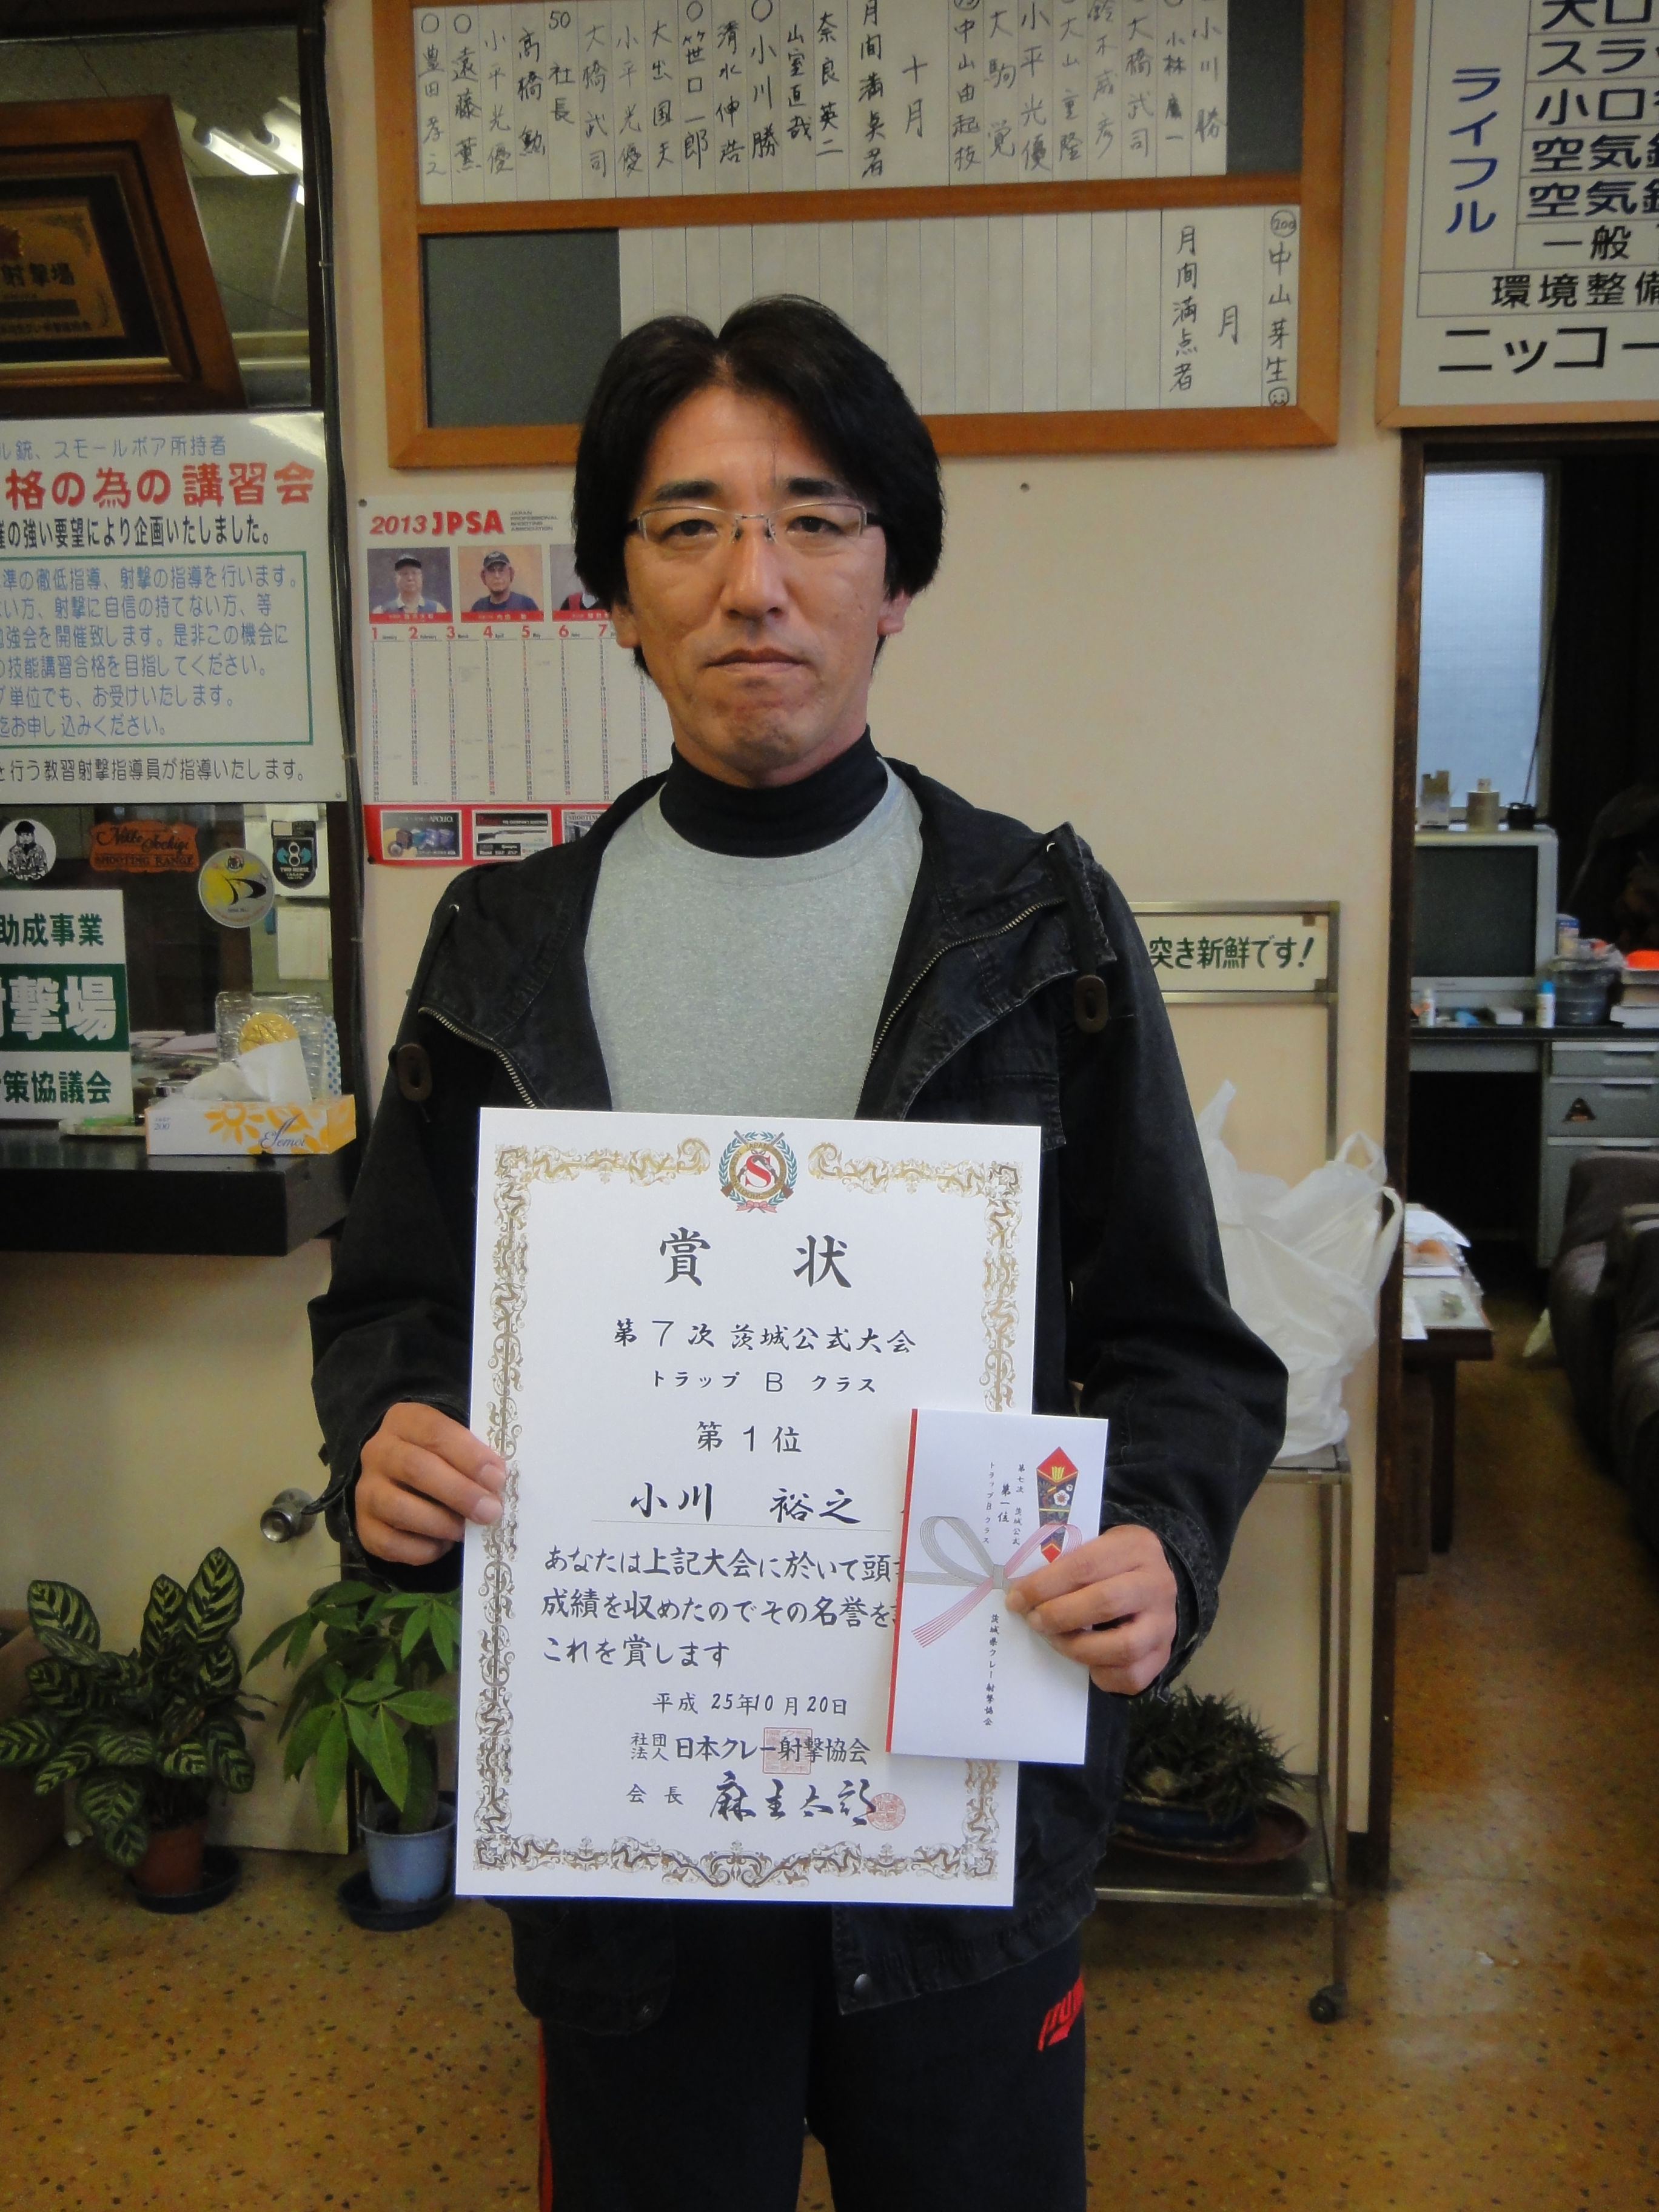 小川勝
小林廣一
大橋武司
鈴木威彦
大山重隆
小平光優
大駒覚
中山由起枝
十月
月間満点者
奈良英二
山室直哉
○小川勝
清水伸浩
○笹口一郎
大出国夫
小平光優
大橋武司
50 社長
高橋勲
小平光優
○遠藤薫
○豊田孝之
200 中山芽生
月
月間満点者
ライフル
スラ
小口
空気銃
空気銃
一般
環境整備
ニッコー
射撃場
ル銃、スモールボア所持者
格の為の講習会
の強い要望により企画いたしました。
準の徹底指導、射撃の指導を行います。
い方、射撃に自信の持てない方、等
強会を開催致します。是非この機会に
の技能講習合格を目指してください。
プ単位でも、お受けいたします。
迄お申し込みください。
を行う教習射撃指導員が指導いたします。
2013 JPSA
JAPAN
PROFESSIONAL
SHOOTING
ASSOCIATION
1 2 3 4 5 6 7
Nikko Tochigi
SHOOTING RANGE
助成事業
射撃場
対策協議会
200
Elemoi
突き新鮮です!
S
賞状
第7次 茨城公式大会
トラップ B クラス
第1位
小川 裕之
あなたは上記大会に於いて頭
成績を収めたのでその名誉を
これを賞します
平成 25年10月20日
社団法人 日本クレー射撃協会
会長 麻生太郎
第七次 茨城公式
第一位
トラップB クラス
茨城県クレー射撃協会